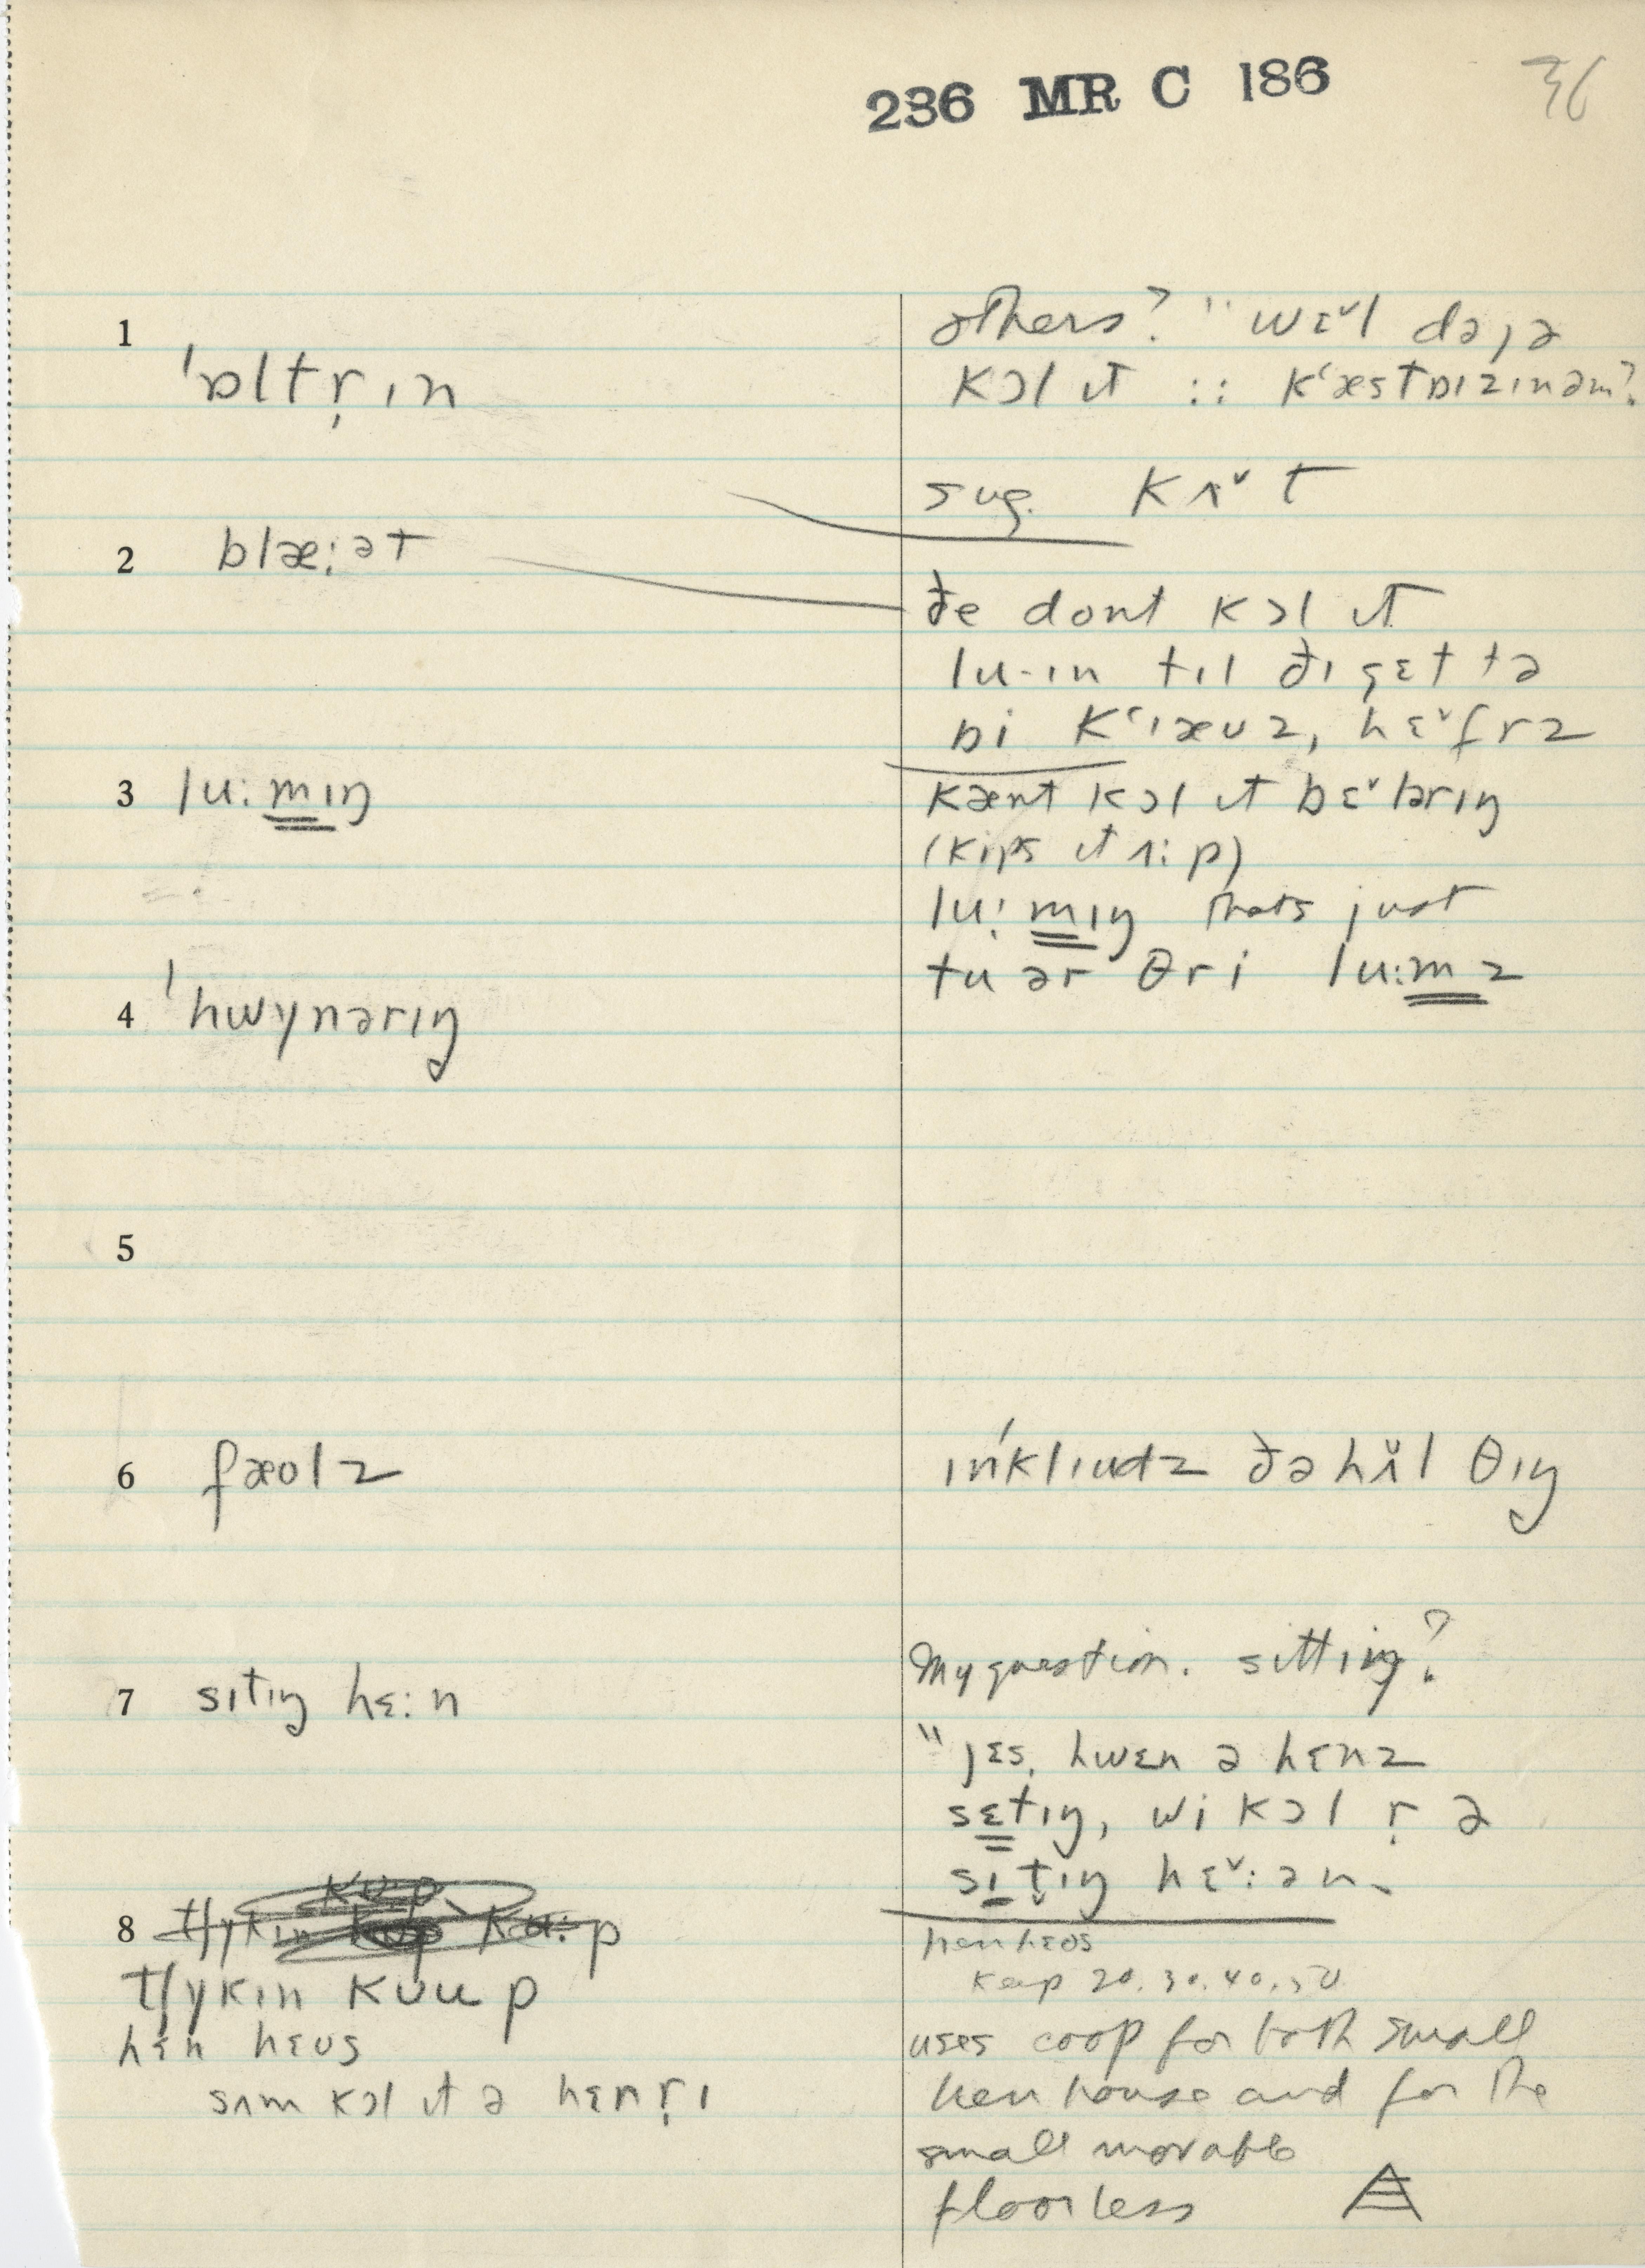 236 MR C 186
36
1
ˈɒltr̩ɪn
others? " wɛˇl də,ə
kɔl ɪt :: kʻæstɒɪzɪnəm?
sug. kʌˇt
2 blæ:ət
ðe dont kɔl ɪt
lu-ɪn tɪl ðɪ gɛt tə
bi kʻɪæʊz, hɛˇfrz
3 lu:mɪŋ
kænt kɔl ɪt bɛˇlərɪŋ
(kips ɪt ʌ:p)
lu:mɪŋ thats just
tu ər θri lu:mz
4 ˈhwynərɪŋ
5
6 fæʊlz
ɪnˈklɪudz ðə hʌ̌l θɪŋ
7 sɪtɪŋ hɛ:n
My question. sitting?
"jɛs, hwɛn ə hɛnz
sɛtɪŋ, wi kɔl r̩ ə
sɪt̬ɪŋ hɛˇ:ən.
8
tʃykɪn kʊup
hɛn hɛʊs
sʌm kɔl ɪt ə hɛnr̩ɪ
hɛn hɛʊs
keep 20.30.40.50
uses coop for both small
hen house and for the
small movable
floorless